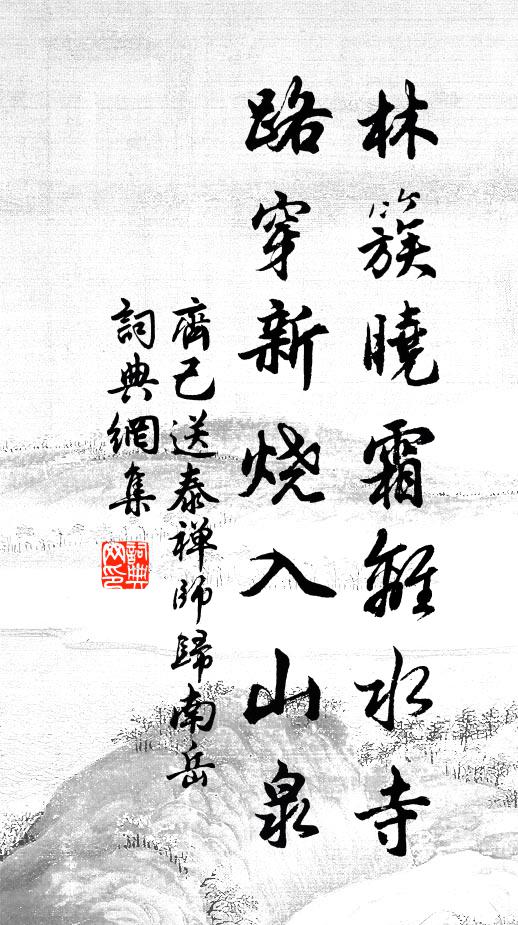 林簇曉霜離水寺
路穿新燒入山泉
齊己送泰禅師歸南岳
詞典網集
詞典網印